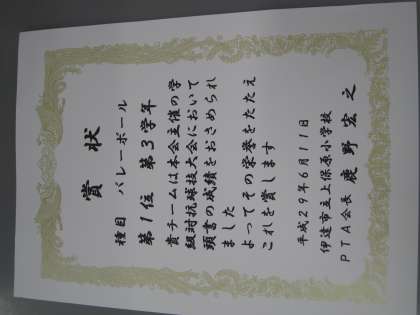 賞状
種目 バレーボール
第1位 第3学年
貴チームは本会主催の学
級対抗球技大会において
頭書の成績をおさめられ
ました
よってその栄誉をたたえ
これを賞します
平成29年6月11日
伊達市立上保原小学校
PTA会長 鹿野宏之